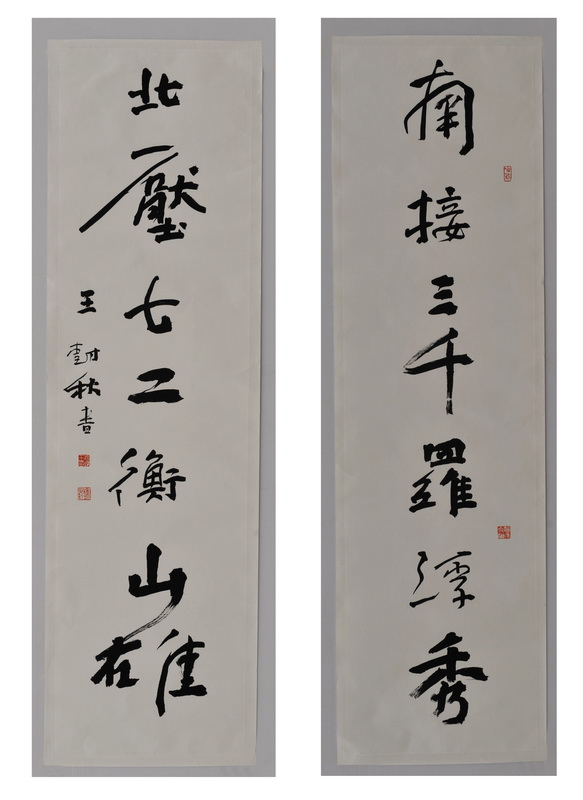 南接三千羅浮秀
北壓七二衡山雄
王封秋書